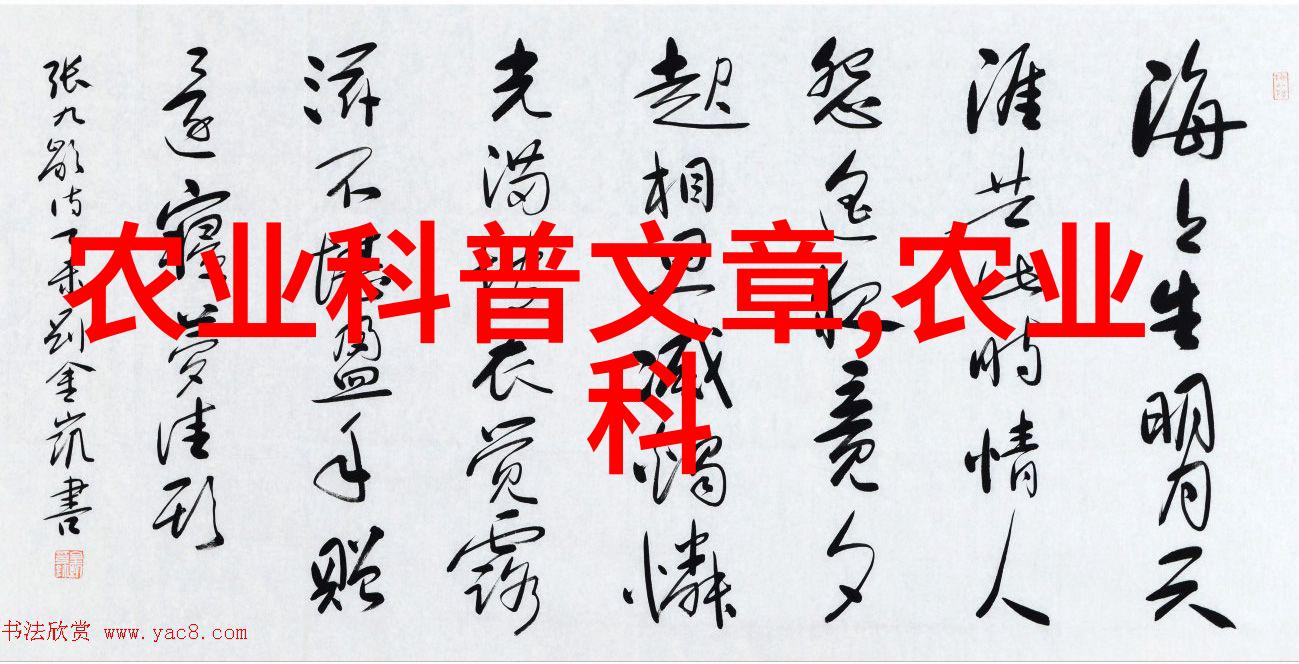 海上生明月天
涯共此时情人
怨遥夜竟夕
起相思滅燭憐
光满披衣觉露
滋不堪盈手赠
还寝梦佳期
张九龄诗 刘金凯书
农业科普文章,农业
科
书法欣赏 www.yac8.com